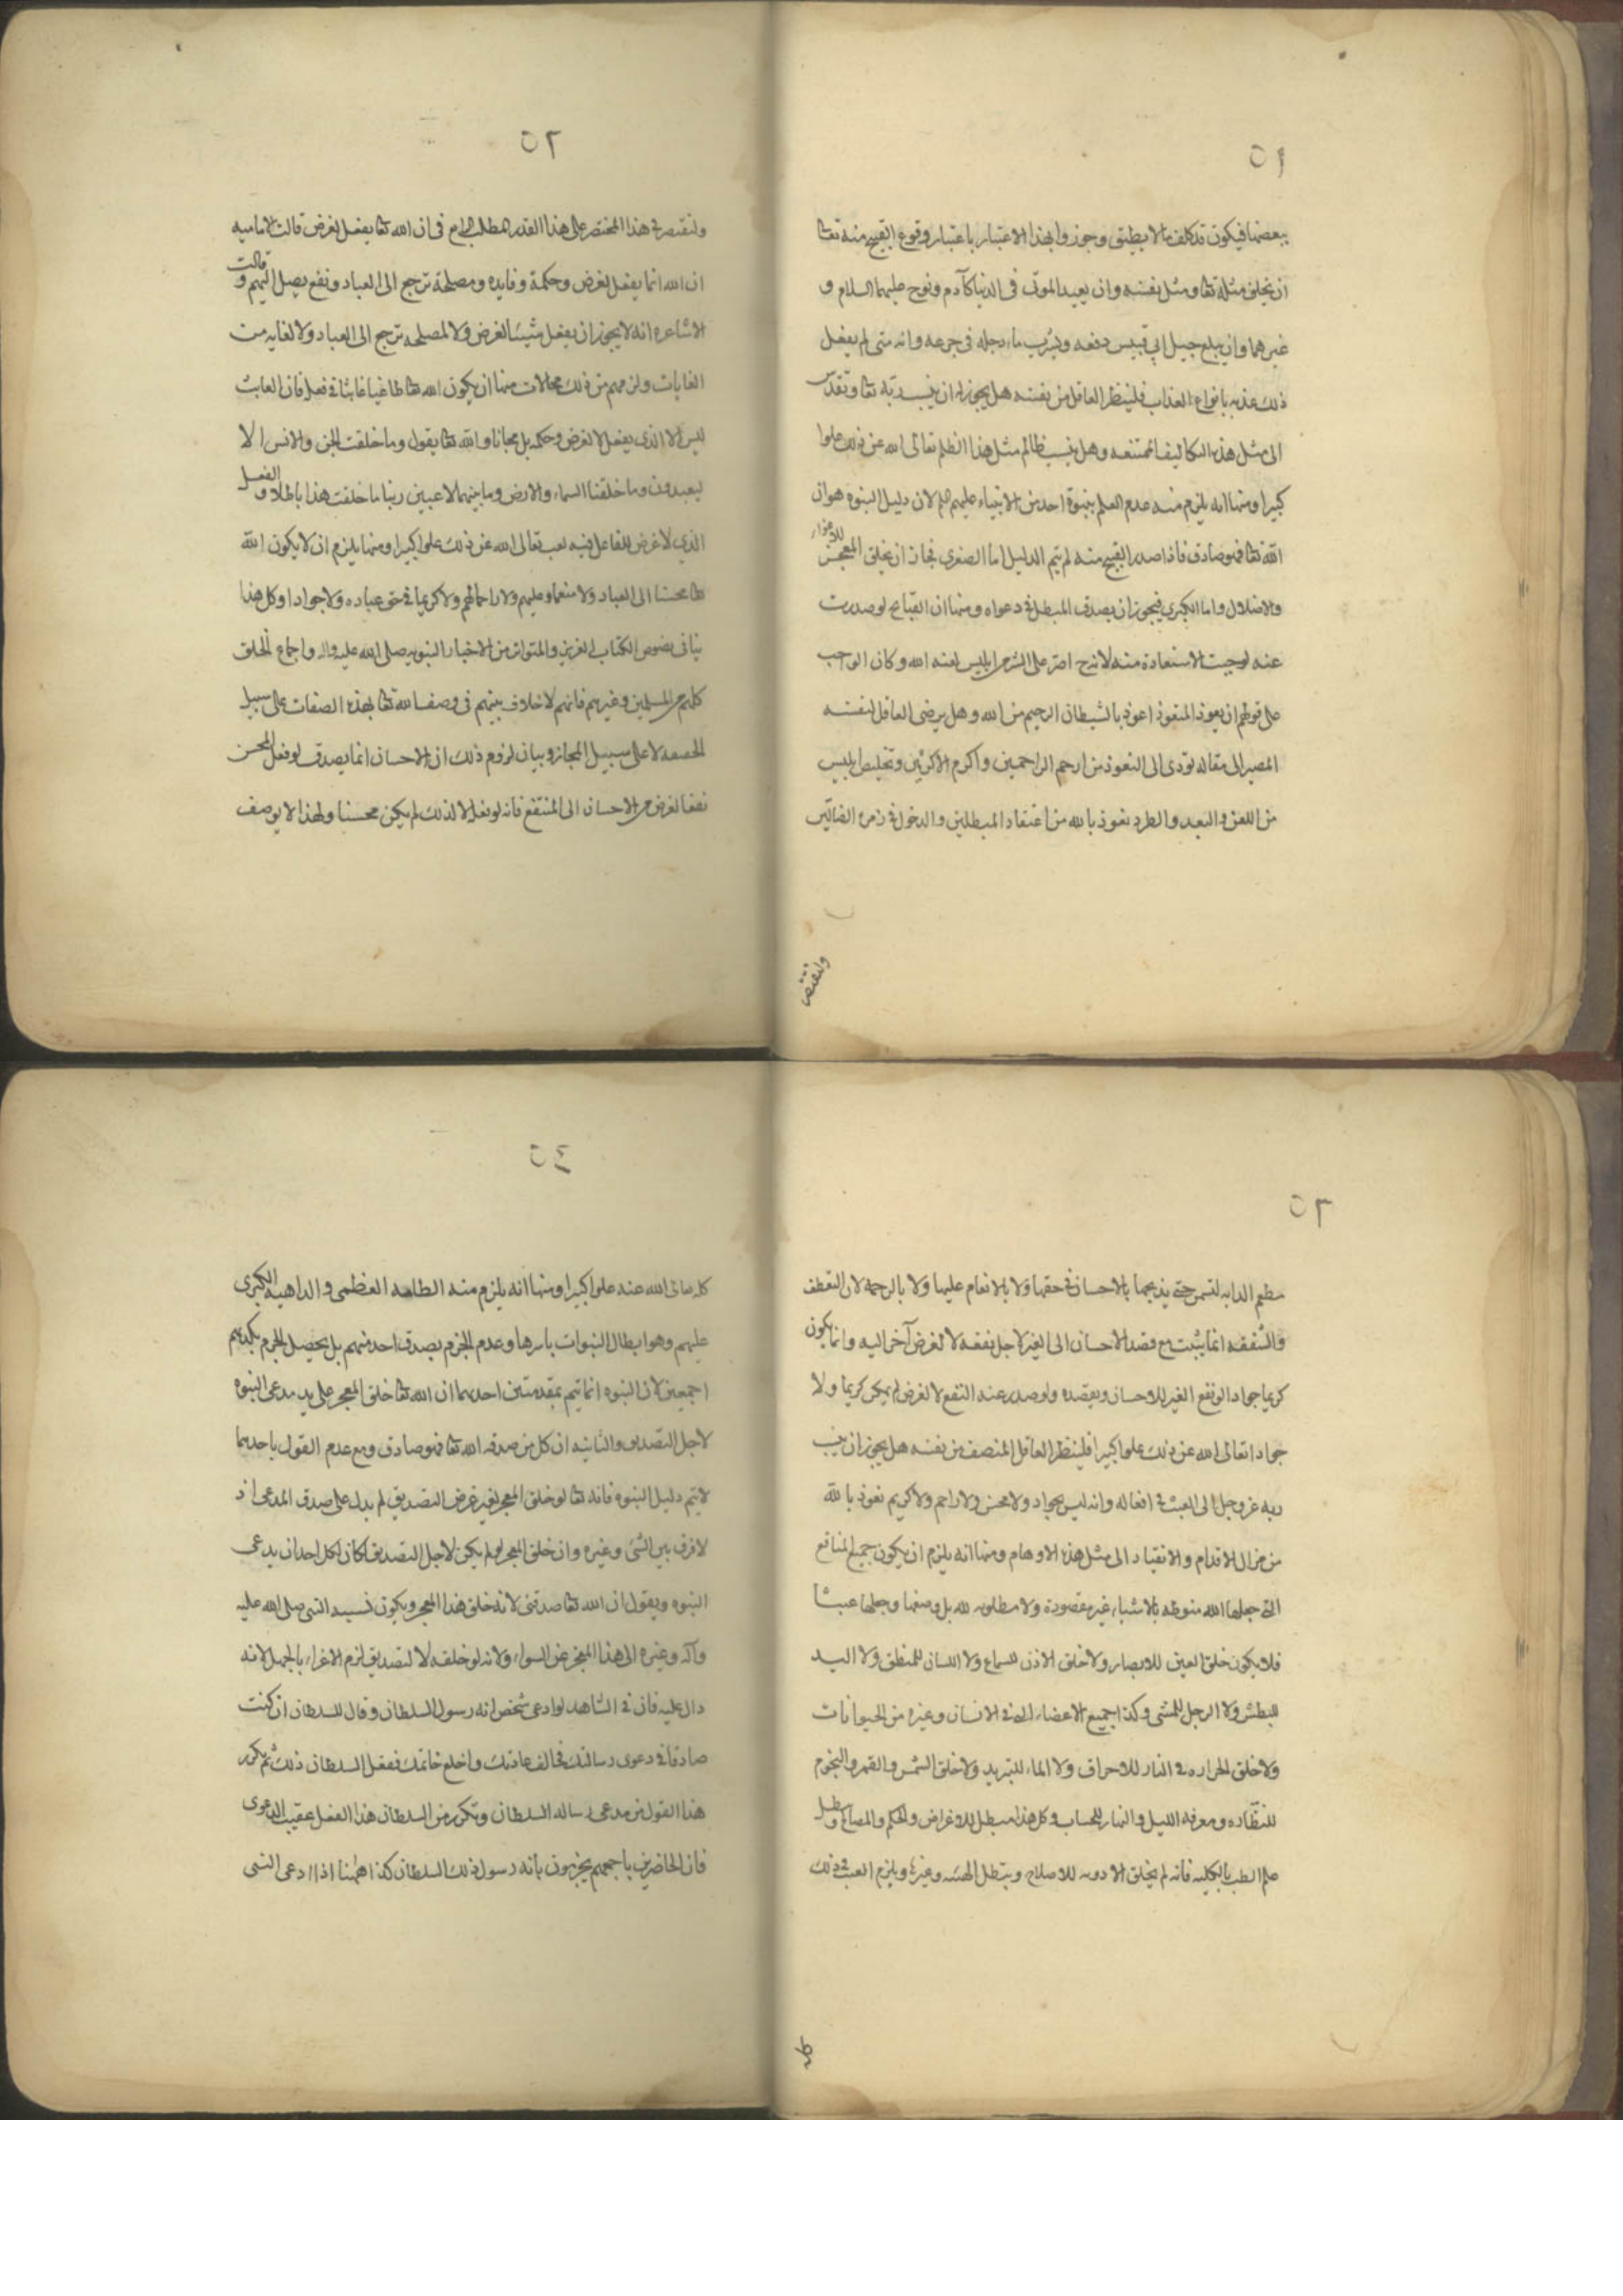 ٥١
ببعضها فيكون قد كلف ما لا يطيق وجوزوا بهذا الاعتبار باعتبار وقوع القبيح منه تعا
ان يخلق مثله تعا ومثل نفسه وان يعيد الموتى في الدنيا كآدم ونوح عليهما السلام و
غيرهما وان يبلع جبل ابي قبيس دفعه ويشرب ماء دجله في جرعه وانه متى لم يفعل
ذلك عذبه بانواع العذاب فلينظر العاقل من نفسه هل يجوز له ان ينسب ربه تعا وتقدس
الى مثل هذه التكاليف الممتنعه وهل ينسب ظالم مثل هذا الظلم تعالى الله عن ذلك علوا
كبيرا ومنها انه يلزم منه عدم العلم بنبوة احد من الانبياء عليهم لان دليل النبوه هو ان
الله تعا فهو صادق فاذا صدر القبيح منه لم يتم الدليل اما الصغرى فجاز ان يخلق المعجز للاغواء
والاضلال واما الكبرى فيجوز ان يصدق المبطل في دعواه ومنها ان القبايح لو صدرت
عنه لوجبت الاستعاذة منه لانه ح اضر على البشر من ابليس لعنه الله وكان الواجب
على قولهم ان يعوذ المتعوذ اعوذ بالشيطان الرجيم من الله وهل يرضى العاقل لنفسه
المصير الى مقاله تودى الى التعوذ من ارحم الراحمين واكرم الاكرمين وتخليص ابليس
من اللعن والبعد والطرد نعوذ بالله من اعتقاد المبطلين والدخول في زمره الضالين
ولنقتصر
٥٢
ولنقتصر في هذا المختصر على هذا القدر المطلب الرابع في ان الله تعا يفعل لغرض قالت الاماميه
ان الله انما يفعل لغرض وحكمة وفايده ومصلحة ترجع الى العباد ونفع يصل اليهم وقالت
الاشاعره انه لا يجوز ان يفعل شيئا لغرض ولا لمصلحه ترجع الى العباد ولا لغايه من
الغايات ولزمهم من ذلك محالات منها ان يكون الله تعا لاعبا عابثا في فعله فان العابث
ليس الا الذي يفعل لا لغرض وحكمه بل مجانا والله تعا يقول وما خلقت الجن والانس الا
ليعبدون وما خلقنا السماء والارض وما بينهما لاعبين ربنا ما خلقت هذا باطلا والفعل
الذي لا غرض للفاعل فيه لعب تعالى الله عن ذلك علوا كبيرا ومنها يلزم ان لا يكون الله
تعا محسنا الى العباد ولا منعما عليهم ولا راحما لهم ولا كريما في حق عباده ولا جوادا وكل هذا
ينافي نصوص الكتاب العزيز والمتواتر من الاخبار النبويه صلى الله عليه واله واجماع الخلق
كلهم من المسلمين وغيرهم فانهم لا خلاف بينهم في وصف الله تعا بهذه الصفات على سبيل
الحقيقه لا على سبيل المجاز وبيان لزوم ذلك ان الاحسان انما يصدق لو فعل المحسن
نفعا لغرض من الاحسان الى المنتفع فانه لو فعله لا لذلك لم يكن محسنا ولهذا لا يوصف
٥٣
مطعم الدابه لتسمن حتى يذبحها بالاحسان في حقها ولا بالانعام عليها ولا بالرحمه لان التعطف
والشفقه انما يثبت مع قصد الاحسان الى الغير لاجل نفعه لا لغرض آخر اليه وانما يكون
كريما جوادا لو نفع الغير للاحسان وبقصده ولو صدر عنه النفع لا لغرض لم يكن كريما ولا
جوادا تعالى الله عن ذلك علوا كبيرا فلينظر العاقل المنصف من نفسه هل يجوز ان ينسب
ربه عز وجل الى العبث في افعاله وانه ليس بجواد ولا محسن ولا راحم ولا كريم نعوذ بالله
من مزال الاقدام والانقياد الى مثل هذه الاوهام ومنها انه يلزم ان يكون جميع المنافع
التي جعلها الله منوطه بالاشياء غير مقصودة ولا مطلوبه لله بل وضعها وجعلها عبثا
فلا يكون خلق العين للابصار ولا خلق الاذن للسماع ولا اللسان للمنطق ولا اليد
للبطش ولا الرجل للمشي وكذا جميع الاعضاء التي في الانسان وغيره من الحيوانات
ولا خلق الحراره في النار للاحراق ولا الماء للتبريد ولا خلق الشمس والقمر والنجوم
للنظاره ومعرفه الليل والنهار للحساب وكل هذا مبطل للاغراض والحكم والمصالح ويبطل
علم الطب بالكليه فانه لم يخلق الادويه للاصلاح ويبطل الهيئه وغيرها ويلزم العبث في ذلك
كله
٥٤
كله تعالى الله عنه علوا كبيرا ومنها انه يلزم منه الطامه العظمى والداهيه الكبرى
عليهم وهو ابطال النبوات باسرها وعدم الجزم بصدق احد منهم بل يحصل الجزم بكذبهم
اجمعين لان النبوه انما تتم بمقدمتين احديهما ان الله تعا خلق المعجز على يد مدعي النبوه
لاجل التصديق والثانيه ان كل من صدقه الله تعا فهو صادق ومع عدم القول باحديهما
لا يتم دليل النبوه فانه تعا لو خلق المعجز لغير غرض التصديق لم يدل على صدق المدعي اذ
لا فرق بين النبي وغيره وان خلق المعجز لو لم يكن لاجل التصديق لكان لكل احد ان يدعي
النبوه ويقول ان الله تعا صدقني لانه خلق هذا المعجز ويكون نسبه النبي صلى الله عليه
وآله وغيره الى هذا المعجز على السواء ولانه لو خلقه لا لتصديق لزم الاغراء بالجهل لانه
دال عليه فان في الشاهد لو ادعى شخص انه رسول السلطان وقال للسلطان ان كنت
صادقا في دعوى رسالتك فخالف عادتك واخلع خاتمك ففعل السلطان ذلك ثم تكرر
هذا القول من مدعي رساله السلطان وتكرر من السلطان هذا الفعل عقيب الدعوى
فان الحاضرين باجمعهم يجزمون بانه رسول ذلك السلطان كذا ههنا اذا ادعى النبي